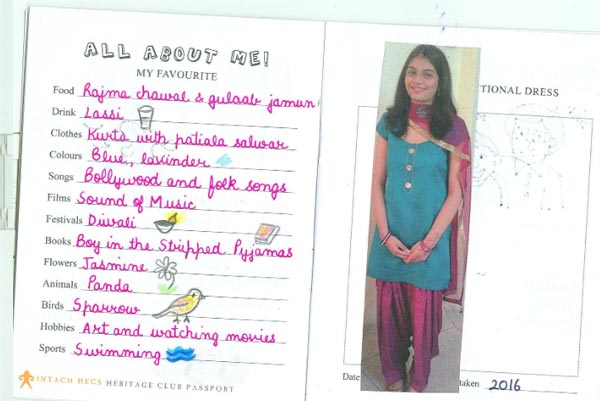 ALL ABOUT ME!
MY FAVOURITE
Food Rajma chawal & gulaab jamun
Drink Lassi
Clothes Kurta with patiala salwar
Colours Blue, lavinder
Songs Bollywood and folk songs
Films Sound of Music
Festivals Diwali
Books Boy in the Stripped Pyjamas
Flowers Jasmine
Animals Panda
Birds Sparrow
Hobbies Art and watching movies
Sports Swimming
INTACH HECS HERITAGE CLUB PASSPORT
TIONAL DRESS
Date taken 2016